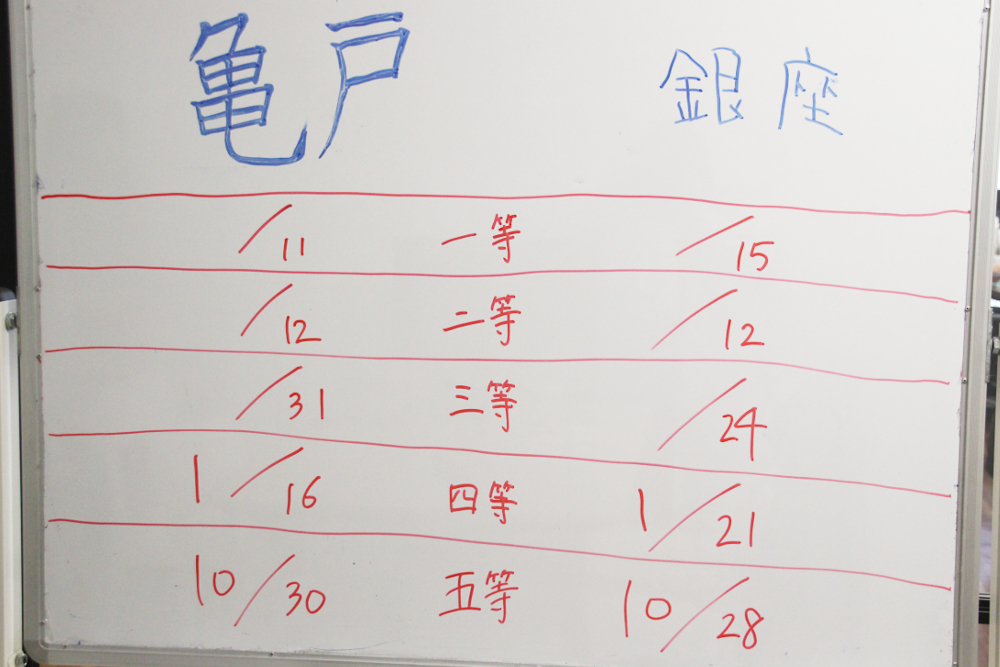 亀戸 銀座
/11 一等 /15
/12 二等 /12
/31 三等 /24
1/16 四等 1/21
10/30 五等 10/28